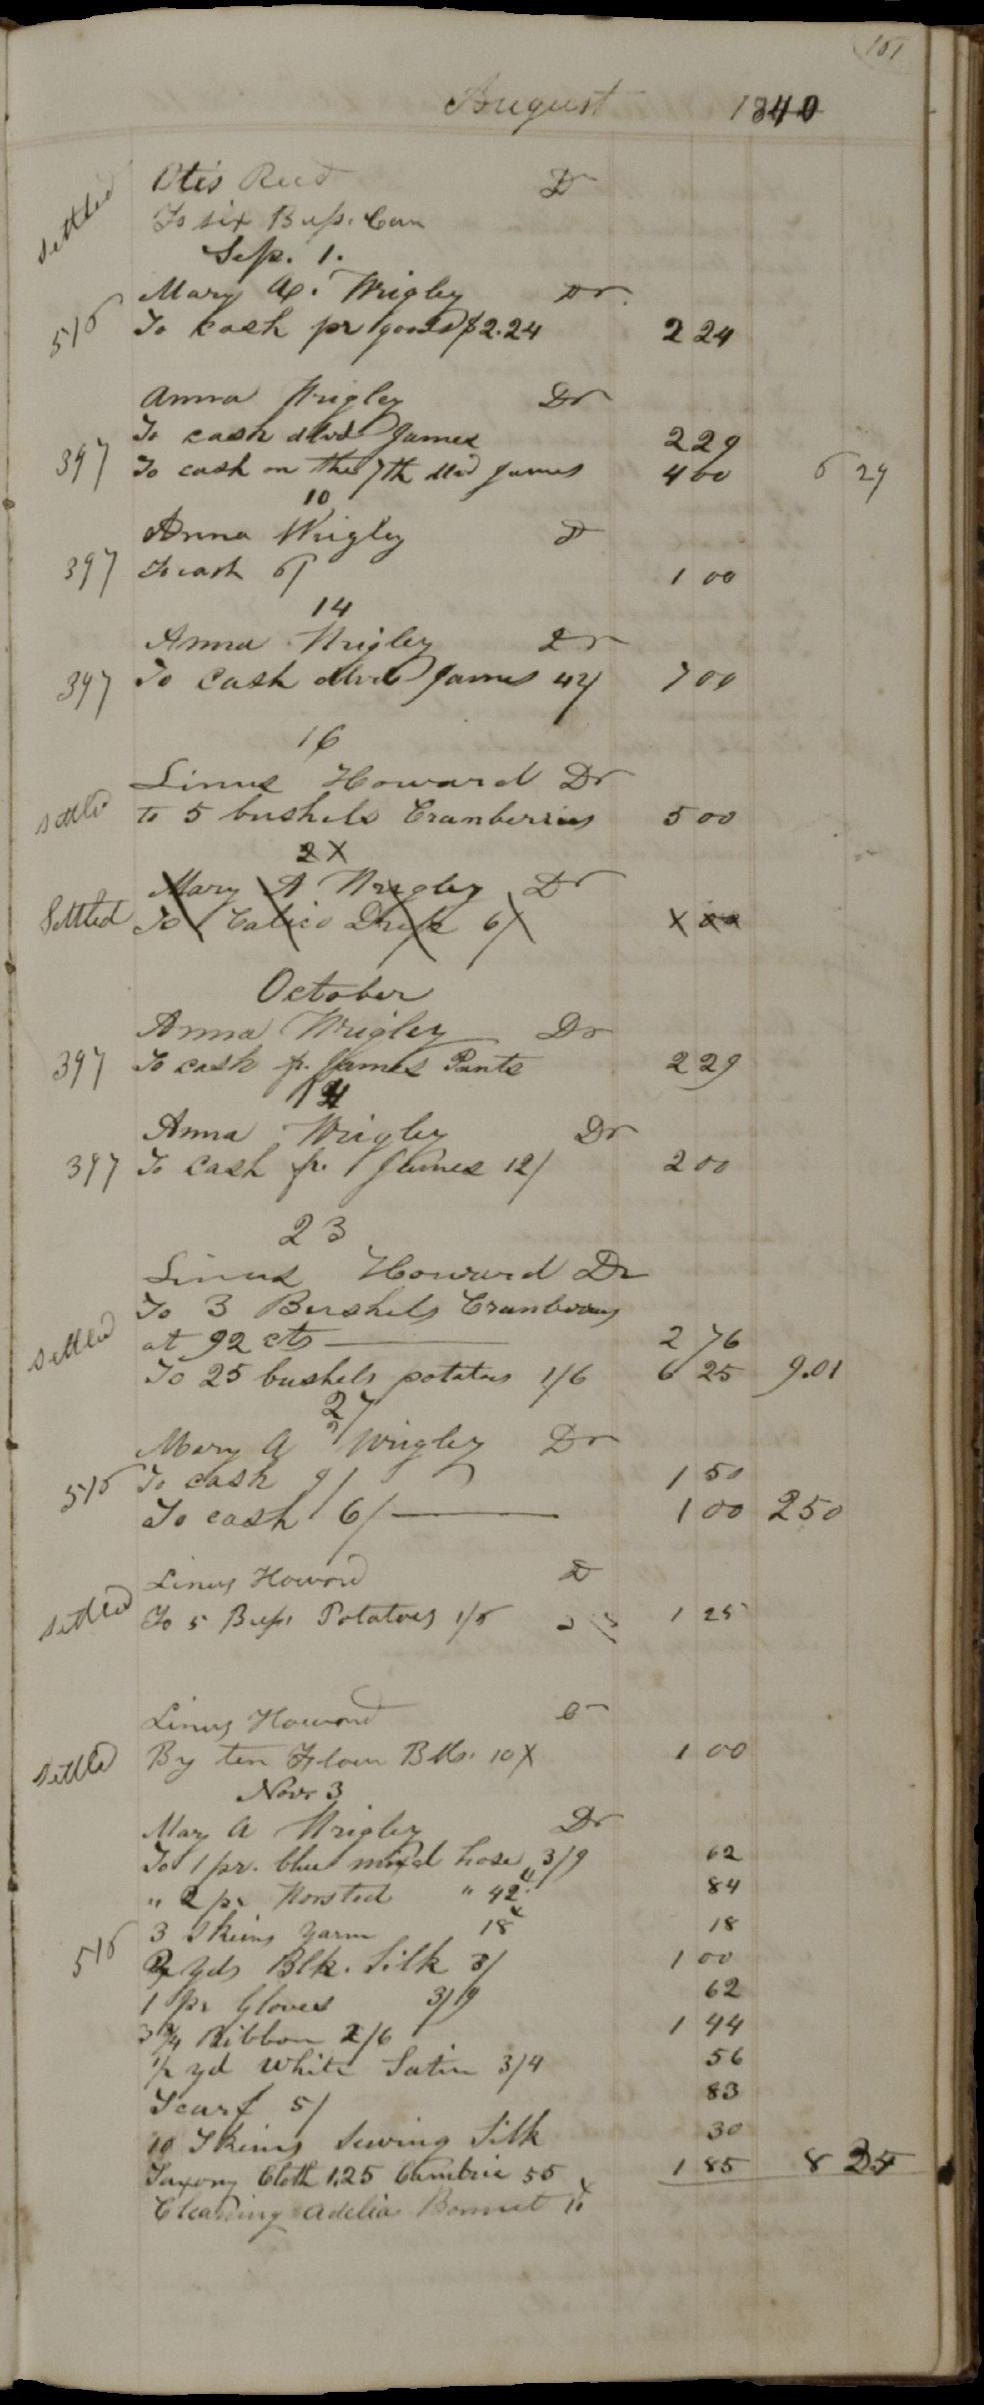 101
August 1840
settled Otis Reed Dr
To six Bus. Corn
Sep. 1.
Mary A. Wrigley Dr.
516 To cash pr goods $2.24 2 24
Anna Wrigley Dr
To cash dlvd James 2 29
397 To cash on the 7th dlvd James 4 00 6 29
10
Anna Wrigley Dr
397 To cash 6/ 1 00
14
Anna Wrigley Dr
397 To Cash dlvd James 42/ 7 00
16
Linus Howard Dr
settled to 5 bushels Cranberries 5 00
2X
Mary A Wrigley Dr
Settled To Calico Dress 6/ X 00
October
Anna Wrigley Dr
397 To cash fr. James Pants 2 29
14
Anna Wrigley Dr
397 To Cash fr. James 12/ 2 00
23
Linus Howard Dr
To 3 Bushels Cranberries
settled at 92 cts 2 76
To 25 bushels potatoes 1/6 6 25 9.01
27
Mary A Wrigley Dr
516 To cash 9/ 1 50
To cash 6/ 1 00 2 50
Linus Howard Dr
settled To 5 Bus. Potatoes 1/6 1 25
Linus Howard Cr
settled By ten Flour Bbls. 10X 1 00
Novr 3
Mary A Wrigley Dr
To 1 pr. blue mixd hose 3/9 62
" 2 pr Worsted " 42 84
3 Skeins Yarn 18 18
516 2 Yds Blk. Silk 3/ 1 00
1 pr Gloves 3/9 62
3 3/4 Ribbon 2/6 1 44
1/2 yd White Satin 3/4 56
Scarf 5/ 83
10 Skeins Sewing Silk 30
Saxony Cloth 1.25 Cambric 55 1 85 8 25
Cleaning Adelia Bonnet